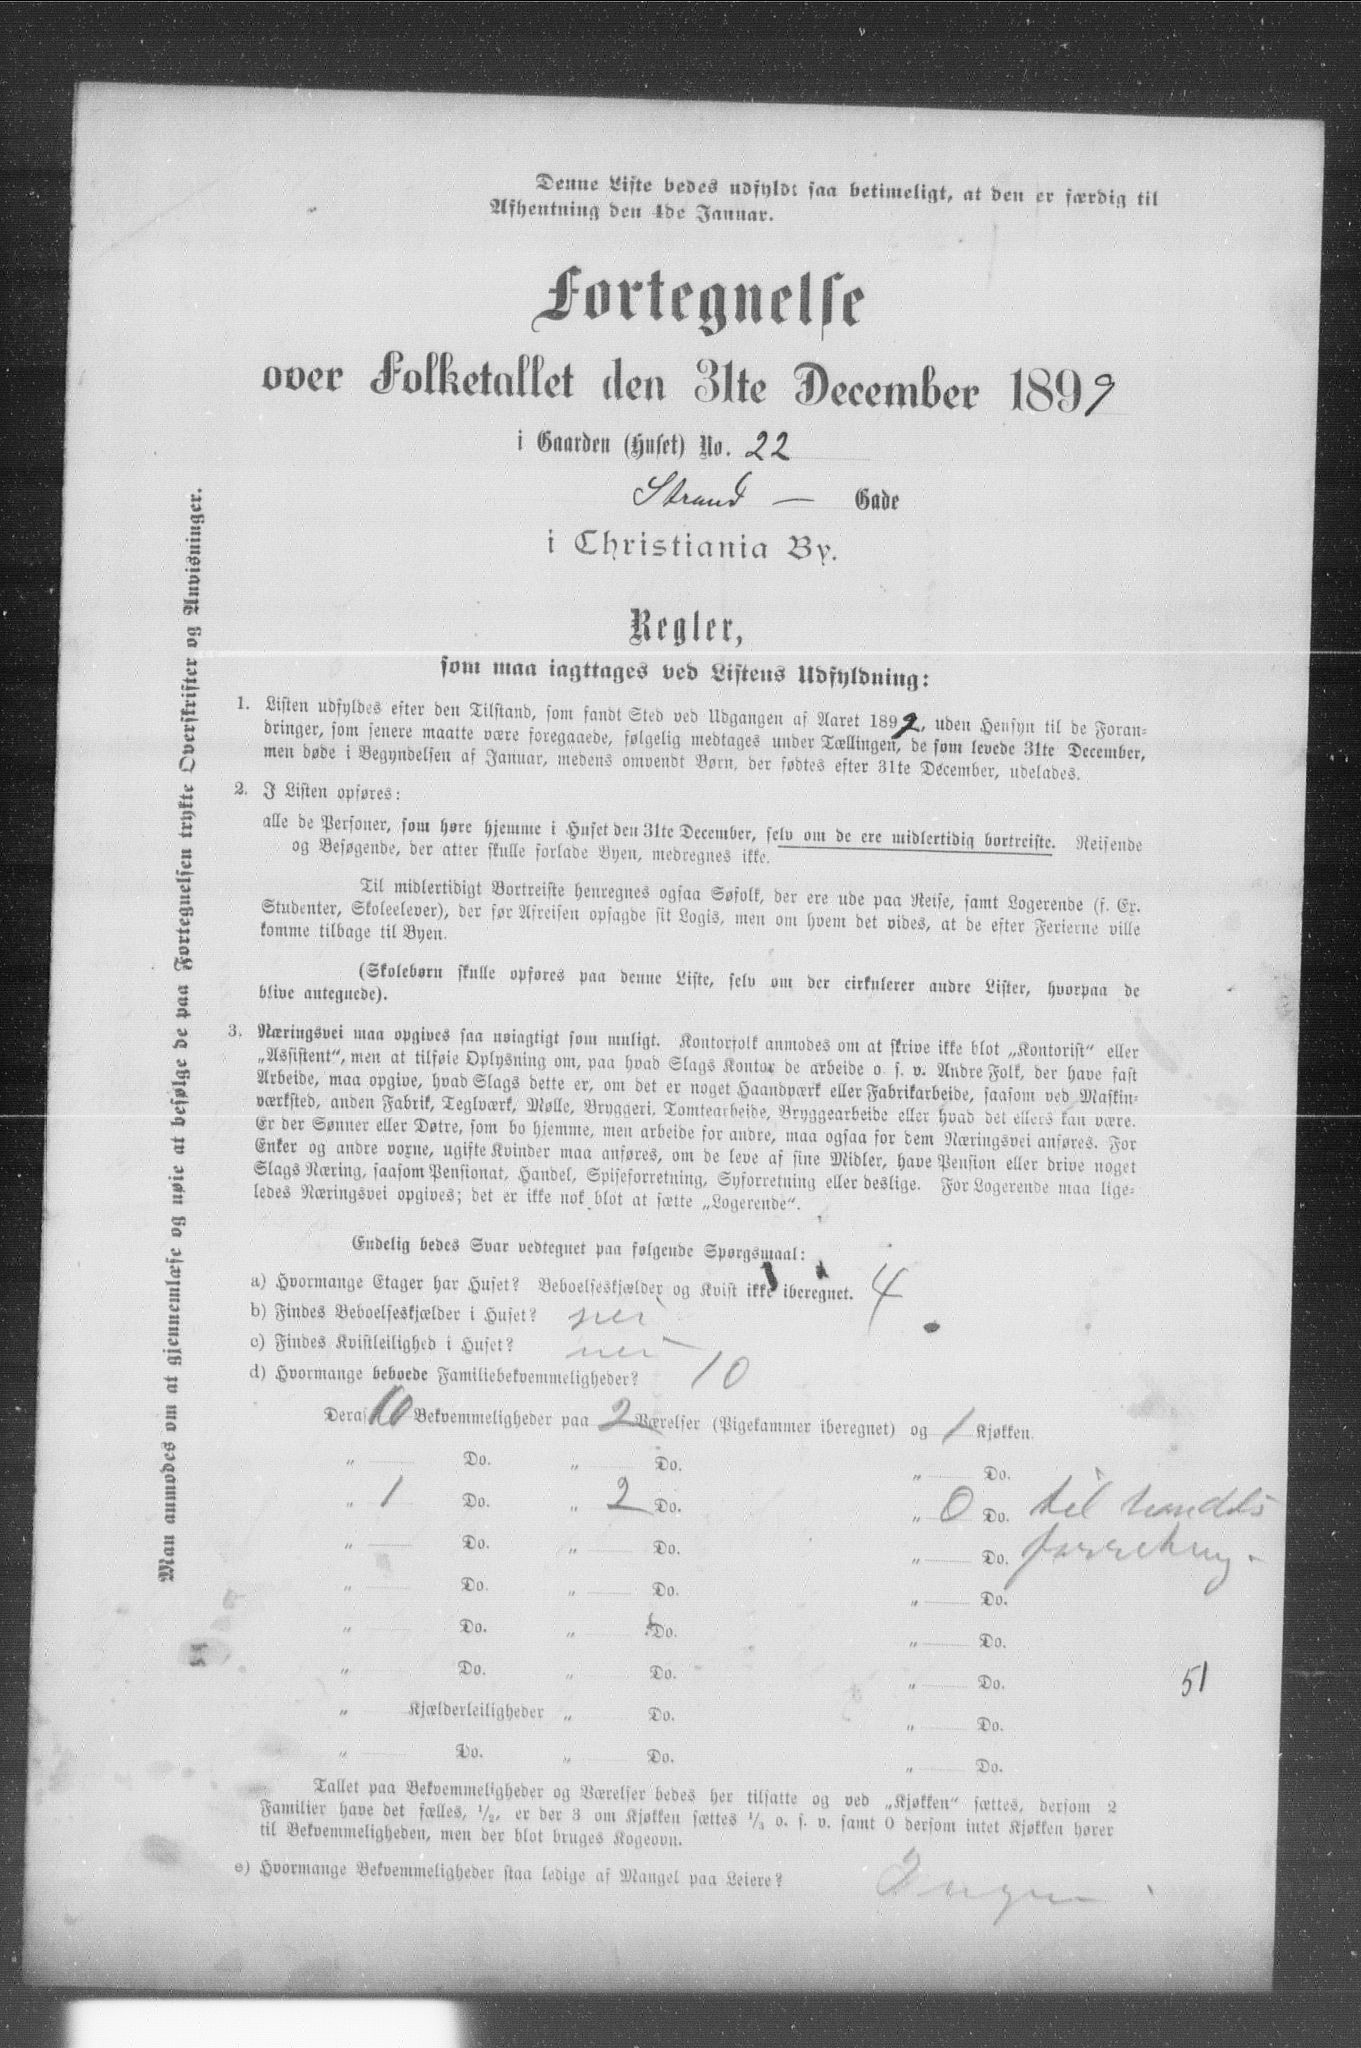 Denne Liste bedes udfyldt saa betimeligt, at den er færdig til
Afhentning den 4de Januar.
Fortegnelse
over Folketallet den 31te December 1899
i Gaarden (Huset) No. 22
Strand — Gade
i Christiania By.
Regler,
som maa iagttages ved Listens Udfyldning:
1. Listen udfyldes efter den Tilstand, som fandt Sted ved Udgangen af Aaret 1899, uden Hensyn til de Foran-
dringer, som senere maatte være foregaaede, følgelig medtages under Tællingen, de som levede 31te December,
men døde i Begyndelsen af Januar, medens omvendt Børn, der fødtes efter 31te December, udelades.
2. I Listen opføres:
alle de Personer, som høre hjemme i Huset den 31te December, selv om de ere midlertidig bortreiste. Reisende
og Besøgende, der atter skulle forlade Byen, medregnes ikke.
Til midlertidigt Bortreiste henregnes ogsaa Søfolk, der ere ude paa Reise, samt Logerende (f. Ex.
Studenter, Skoleelever), der før Afreisen opsagde sit Logis, men om hvem det vides, at de efter Ferierne ville
komme tilbage til Byen.
(Skolebørn skulle opføres paa denne Liste, selv om der cirkulerer andre Lister, hvorpaa de
blive antegnede).
3. Næringsvei maa opgives saa nøiagtigt som muligt. Kontorfolk anmodes om at skrive ikke blot „Kontorist“ eller
„Assistent“, men at tilføie Oplysning om, paa hvad Slags Kontor de arbeide o. s. v. Andre Folk, der have fast
Arbeide, maa opgive, hvad Slags dette er, om det er noget Haandværk eller Fabrikarbeide, saasom ved Maskin-
værksted, anden Fabrik, Teglværk, Mølle, Bryggeri, Tomtearbeide, Bryggearbeide eller hvad det ellers kan være.
Er der Sønner eller Døtre, som bo hjemme, men arbeide for andre, maa ogsaa for dem Næringsvei anføres. For
Enker og andre voxne, ugifte Kvinder maa anføres, om de leve af sine Midler, have Pension eller drive noget
Slags Næring, saasom Pensionat, Handel, Spiseforretning, Syforretning eller deslige. For Logerende maa lige-
ledes Næringsvei opgives; det er ikke nok blot at sætte „Logerende“.
Endelig bedes Svar vedtegnet paa følgende Spørgsmaal:
a) Hvormange Etager har Huset? Beboelseskjælder og Kvist ikke iberegnet. 4
b) Findes Beboelseskjælder i Huset? nei
c) Findes Kvistleilighed i Huset? nei
d) Hvormange beboede Familiebekvemmeligheder? 10
Deraf 10 Bekvemmeligheder paa 2 Værelser (Pigekammer iberegnet) og 1 Kjøkken.
„ Do. „ Do. „ Do.
„ 1 Do. „ 2 Do. „ 0 Do. til handels
„ Do. „ Do. „ Do. forretning.
„ Do. „ Do. „ Do.
„ Do. „ Do. „ Do.
„ Do. „ Do. „ Do.
51
„ Kjælderleiligheder „ Do. „ Do.
„ Do. „ Do. „ Do.
Tallet paa Bekvemmeligheder og Værelser bedes her tilsatte og ved „Kjøkken“ sættes, dersom 2
Familier have det fælles, 1/2, er der 3 om Kjøkken sættes 1/3 o. s. v. samt 0 dersom intet Kjøkken hører
til Bekvemmeligheden, men der blot bruges Kogeovn.
e) Hvormange Bekvemmeligheder staa ledige af Mangel paa Leiere? Ingen
Man anmodes om at gjennemlæse og nøie at befølge de paa Fortegnelsen trykte Overskrifter og Anvisninger.